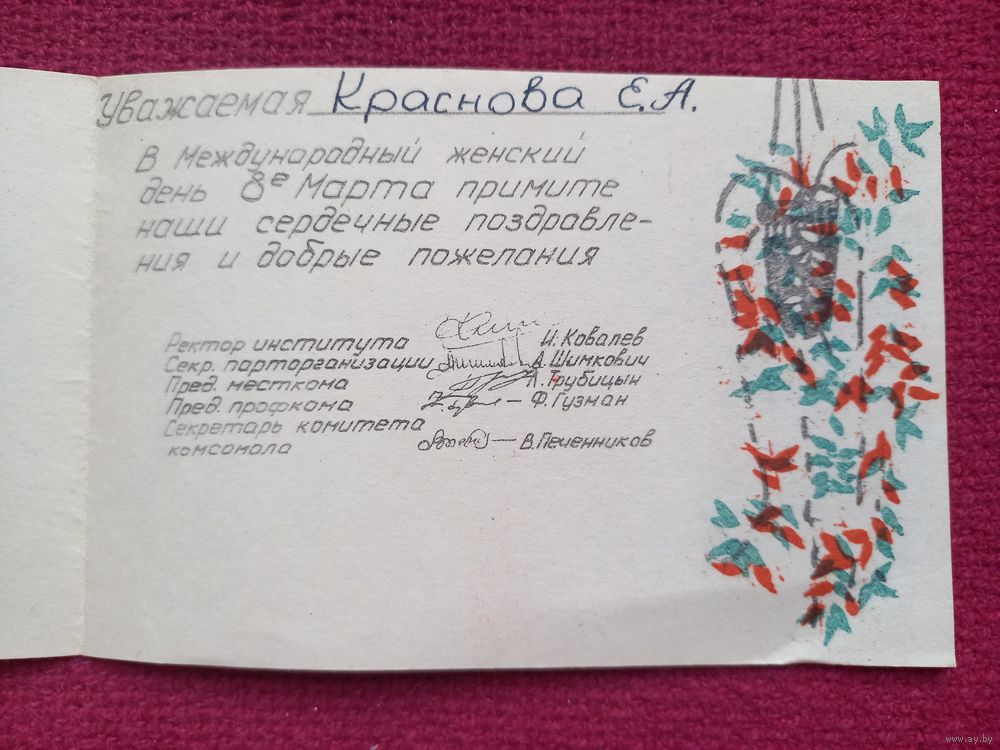 Уважаемая Краснова Е.А.
В Международный женский
день 8е Марта примите
наши сердечные поздравле-
ния и добрые пожелания
Ректор института И. Ковалев
Секр. парторганизации А. Шимкович
Пред. месткома Л. Трубицын
Пред. профкома — Ф. Гузман
Секретарь комитета
комсомола — В. Печенников
www.ay.by